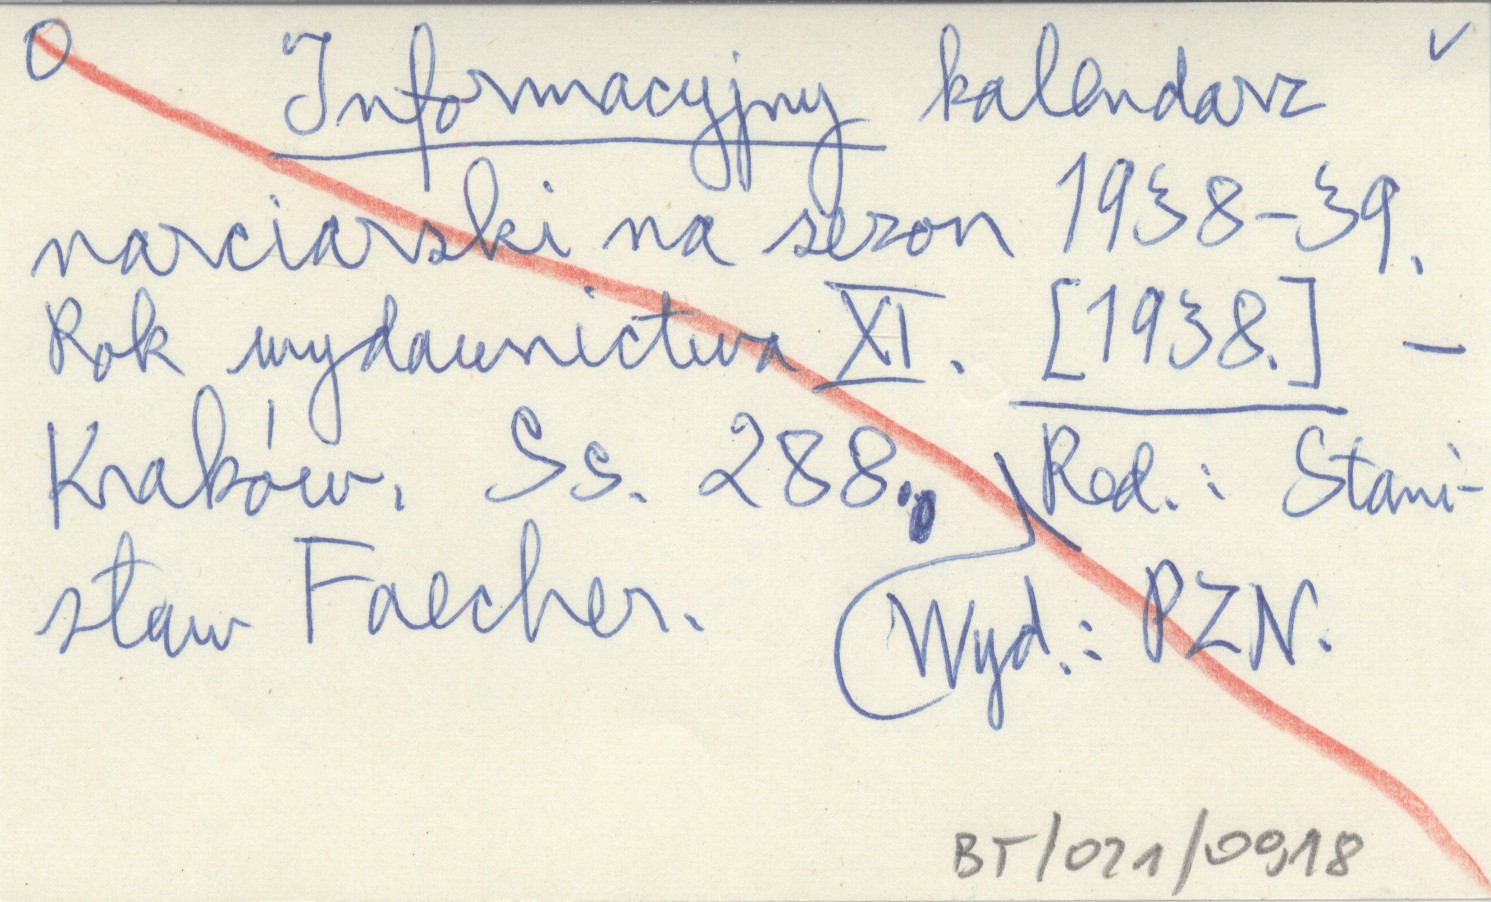 O Informacyjny kalendarz ✓
narciarski na sezon 1938-39.
Rok wydawnictwa XI. [1938.] –
Kraków. Ss. 288., Red.: Stani-
sław Faecher. Wyd.: PZN.
BT/021/0918